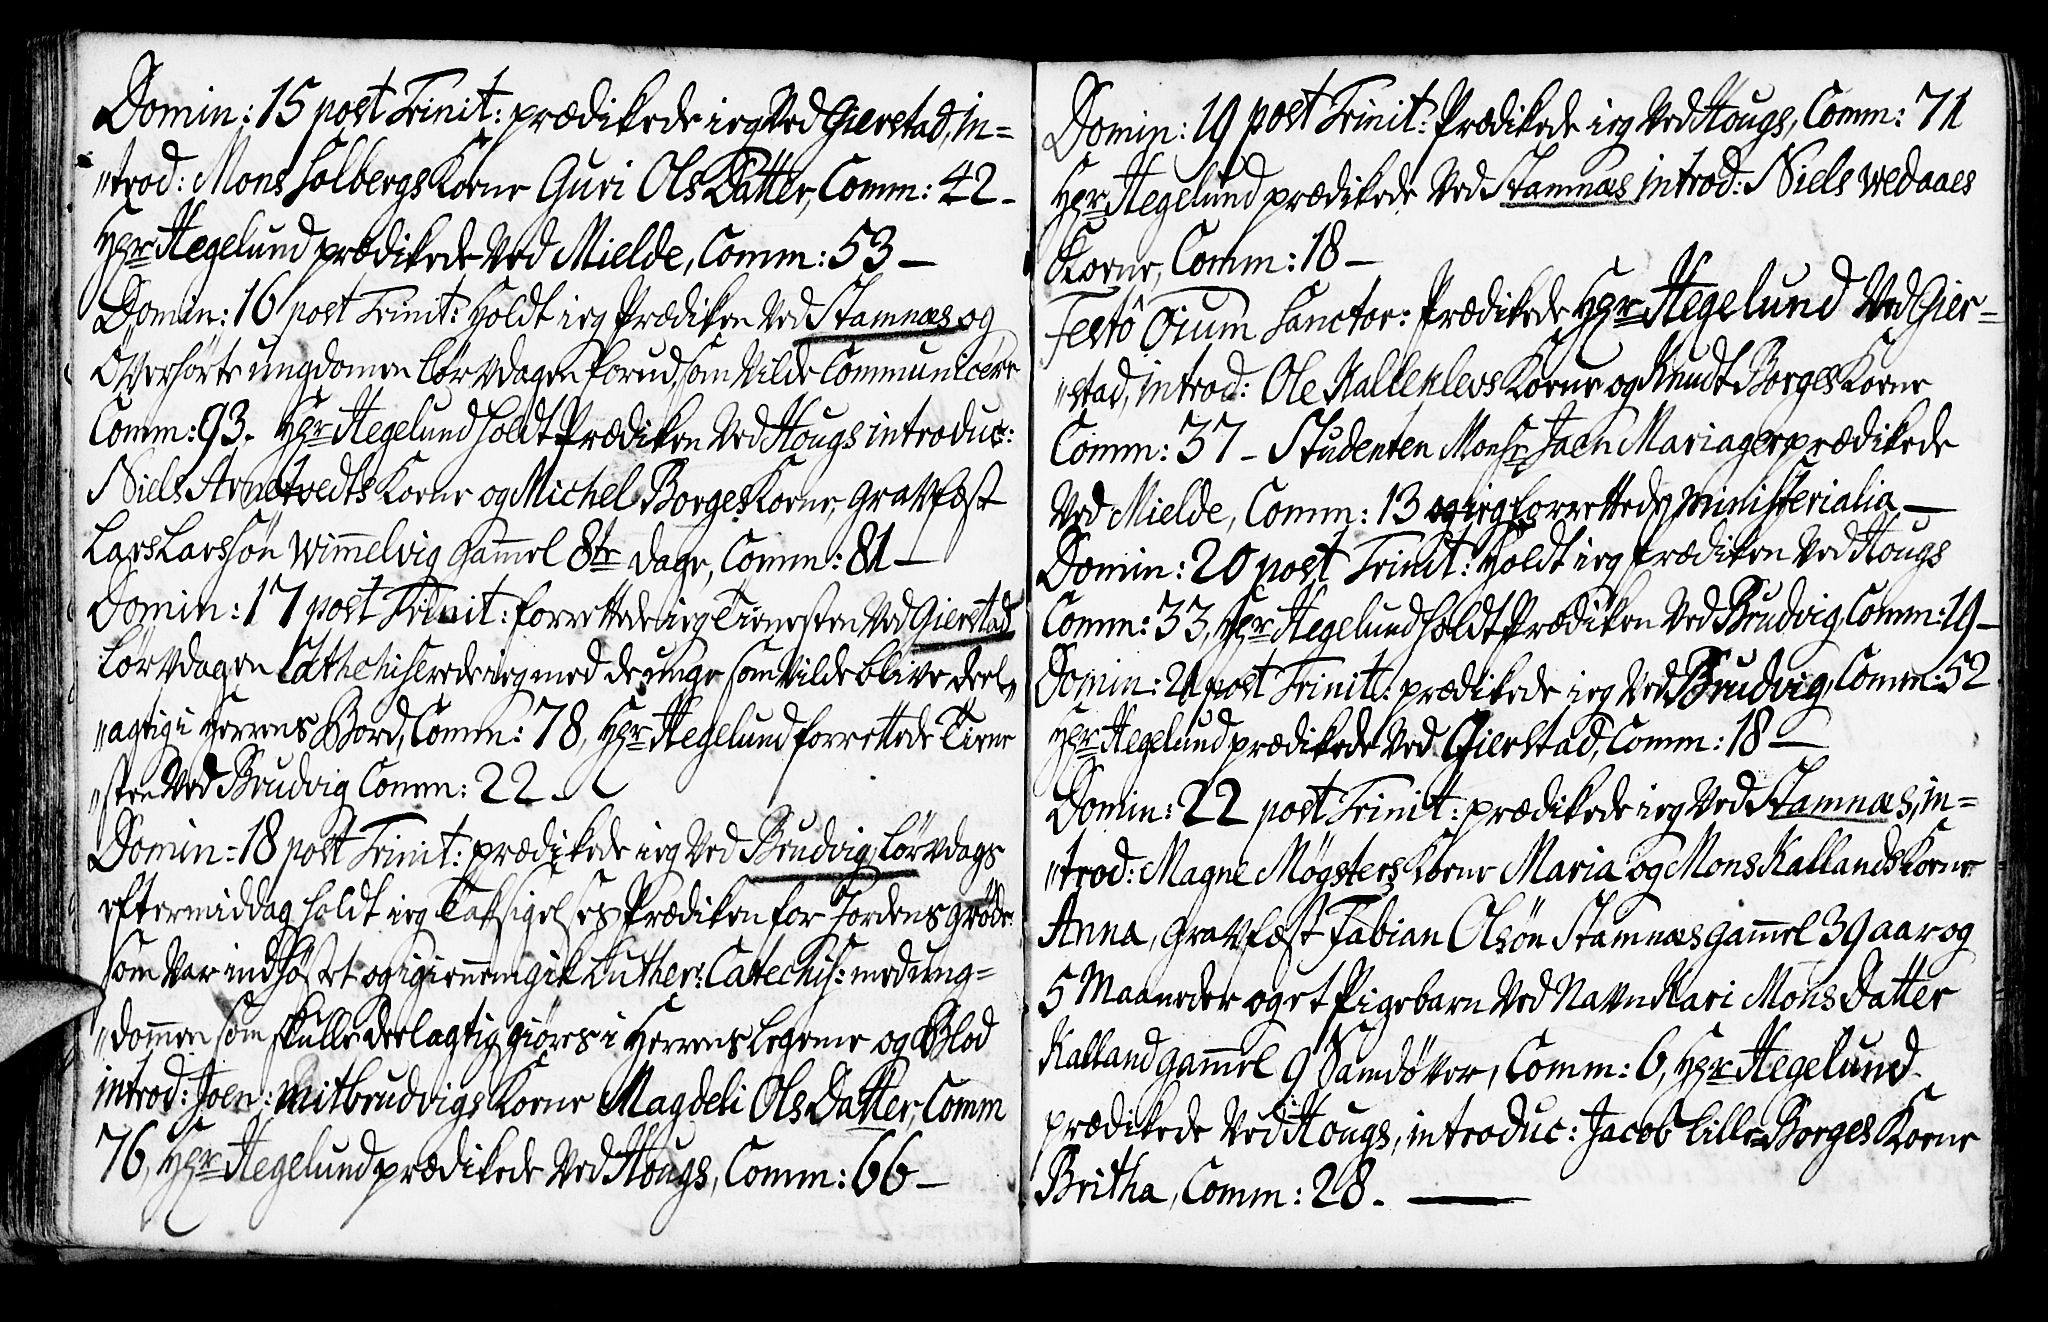 Domin: 15 post Trinit: prædikede ieg Ved Gierstad, in=
"trod: Mons Solbergs Kone Guri Ols Datter, Comm: 42 -
Hgr Hegelund prædikede Ved Mielde, Comm: 53 -
Domin: 16 post Trinit: Holdt ieg Prædiken Ved Stamnæs og
Overhørte ungdomen Lørvdagen forud, som Vilde Communicere
Comm: 93. Hgr Hegelund holdt Prædiken Ved Hougs introduc:
Niels Arnetvedts Kone og Michel Borges Kone, gravfæst
Lars Larssøn Wimmelvig gammel 8te dage, Comm: 81 -
Domin: 17 post Trinit: forrettede ieg Tienesten Ved Gierstad
Lørvdagen Cathechiserede ieg med de unge som Vilde blive deel=
"agtig i Herrens Bord, Comm: 78, Hgr Hegelund forrettede Tiene
"sten Ved Brudvig Comm: 22 -
Domin: 18 post Trinit: prædikede ieg Ved Brudvig, Lørvdags
eftermiddag holdt ieg Taksigelses Prædiken for Jordens grøde
som Var indhøstet og igiennemgik Luther: Catechis: med ung=
"dommen som skulle deelagtig giøres i Herrens Legeme og Blod
introd: Joen mitbrudvigs Kone Magdeli Ols Datter, Comm
76, Hgr Hegelund prædikede Ved Hougs, Comm: 66 -
Domin: 19 post Trinit: Prædikede ieg Ved Hougs, Comm: 71
Hgr Hegelund prædikede Ved Stamnæs introd: Niels wedaaes
Kone, Comm: 18 -
Festô Oium Sanctor: Prædikede Hgr Hegelund Ved Gier=
"stad, introd: Ole Kalleklevs Kone og Knudt Borges Kone
Comm: 37 - Studenten Monsr Joen Mariager prædikede
Ved Mielde, Comm: 13 og ieg forrettede ministerialia -
Domin: 20 post Trinit: Holdt ieg prædiken Ved Hougs
Comm: 33, Hgr Hegelund holdt Prædiken Ved Brudvig, Comm: 19 -
Domin: 21 post Trinit: prædikede ieg Ved Brudvig, Comm: 52
Hgr Hegelund prædikede Ved Gierstad, Comm: 18 -
Domin: 22 post Trinit: prædikede ieg Ved Stamnæs, in=
"trod: Magne Møgsters Kone Maria og Mons Kallands Kone
Anna, gravfæst Fabian Olsøn Stamnæs gammel 39 aar og
5 Maaneder og et Pigebarn Ved Navn Kari Mons Datter
Kalland gammel 9 Samdøver, Comm: 6, Hgr Hegelund
prædikede Ved Hougs, introduc: Jacob Lille Borges Kone
Britha, Comm: 28 -